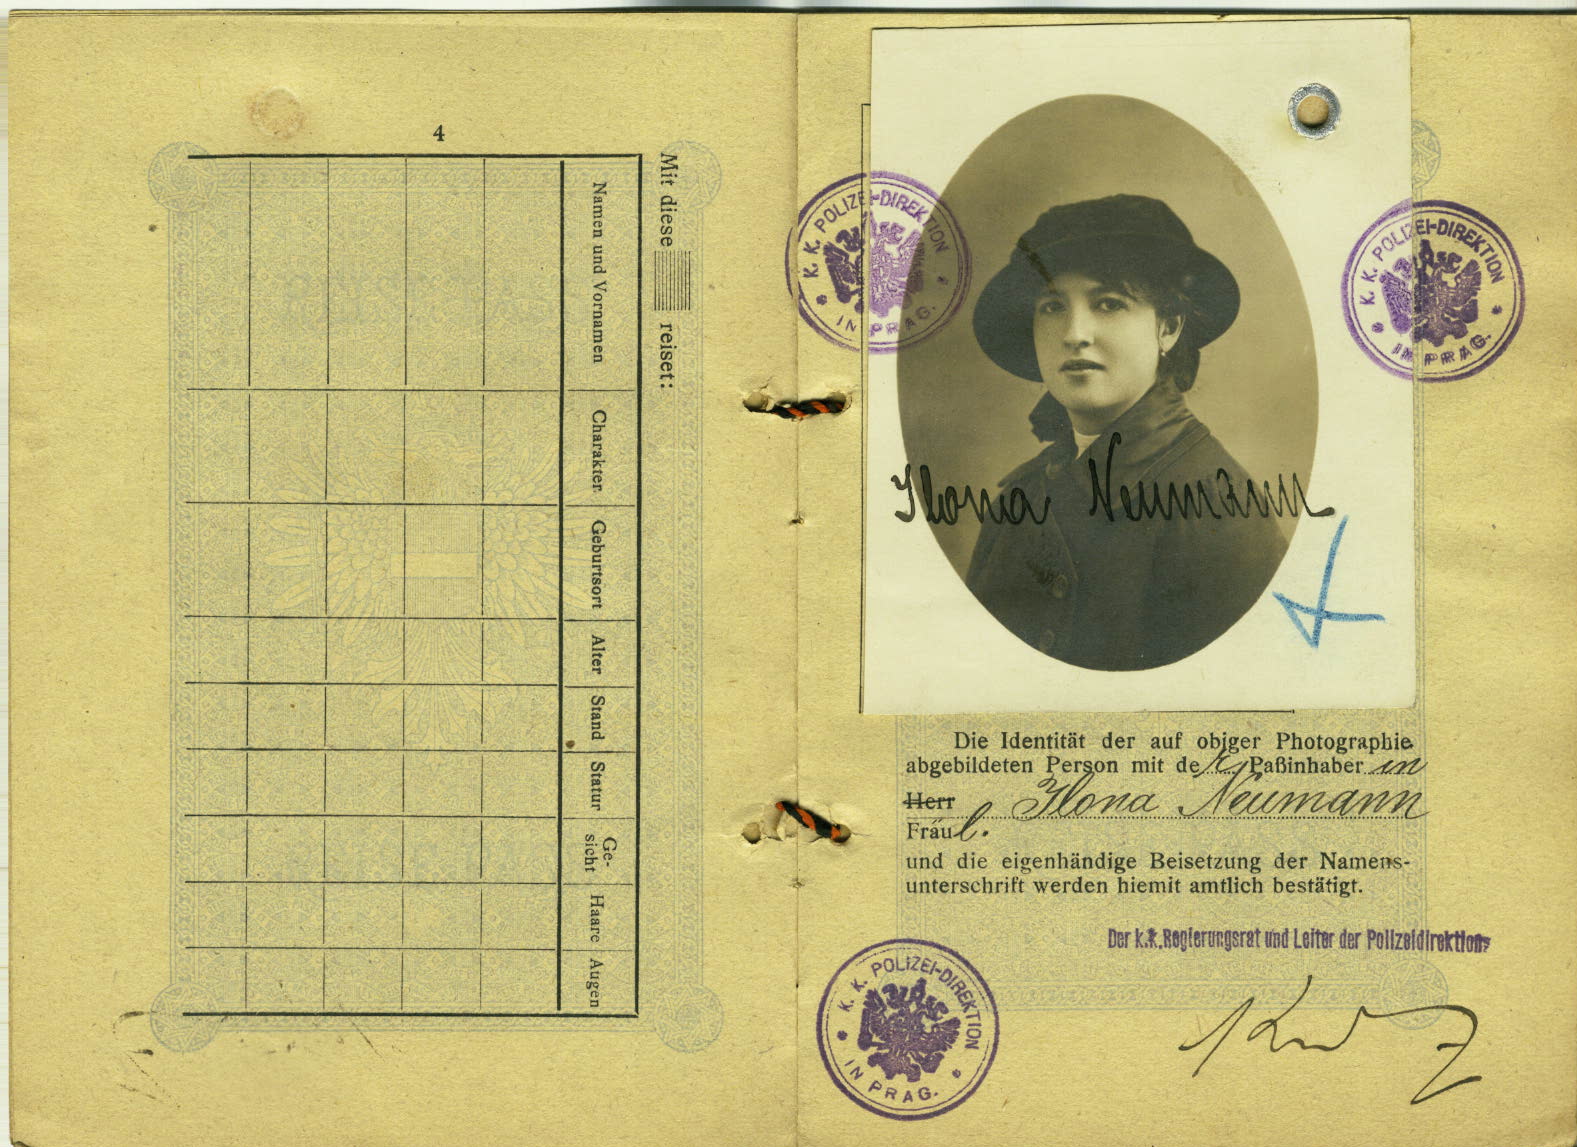 4
Mit diese reiset:
Namen und Vornamen
Charakter
Geburtsort
Alter
Stand
Statur
Ge-
sicht
Haare
Augen
K. K. POLIZEI-DIREKTION
IN PRAG.
K. K. POLIZEI-DIREKTION
IN PRAG.
Ilona Neumann
Die Identität der auf obiger Photographie
abgebildeten Person mit der Paßinhaberin
Herr Ilona Neumann
Fräul.
und die eigenhändige Beisetzung der Namens-
unterschrift werden hiemit amtlich bestätigt.
Der k.k. Regierungsrat und Leiter der Polizeidirektion:
K. K. POLIZEI-DIREKTION
IN PRAG.